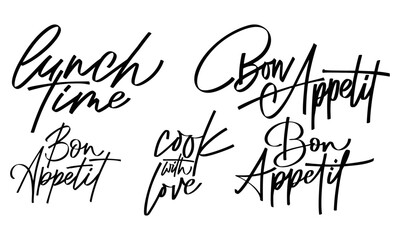 lunch
Time
Bon
Appetit
Bon
Appetit
cook
with
love
Bon
Appetit